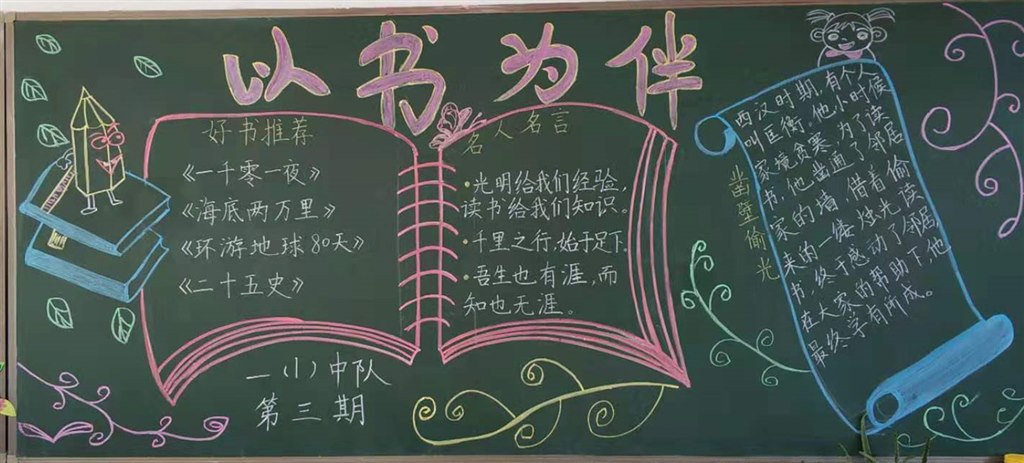 以书为伴
好书推荐
《一千零一夜》
《海底两万里》
《环游地球80天》
《二十五史》
一(1)中队
第三期
名人名言
·光明给我们经验,
读书给我们知识。
·千里之行,始于足下.
·吾生也有涯,而
知也无涯。
凿壁偷光
西汉时期,有个人
叫匡衡。他小时候
家境贫寒,为了读
书,他凿通了邻居
家的墙,借着偷
来的一缕烛光读
书,终于感动了邻居,
在大家的帮助下,他
最终学有所成。